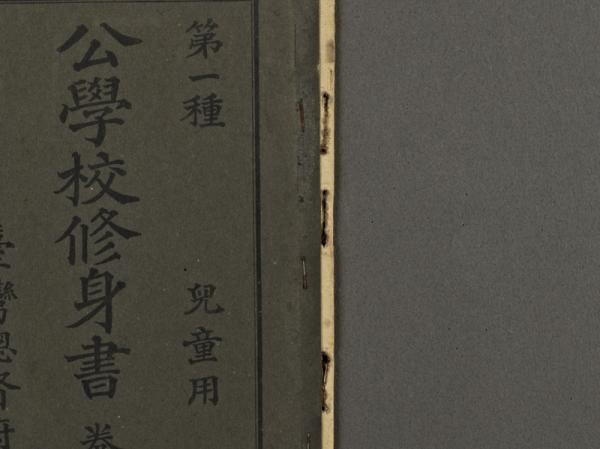 第一種 兒童用
公學校修身書 卷
臺灣總督府